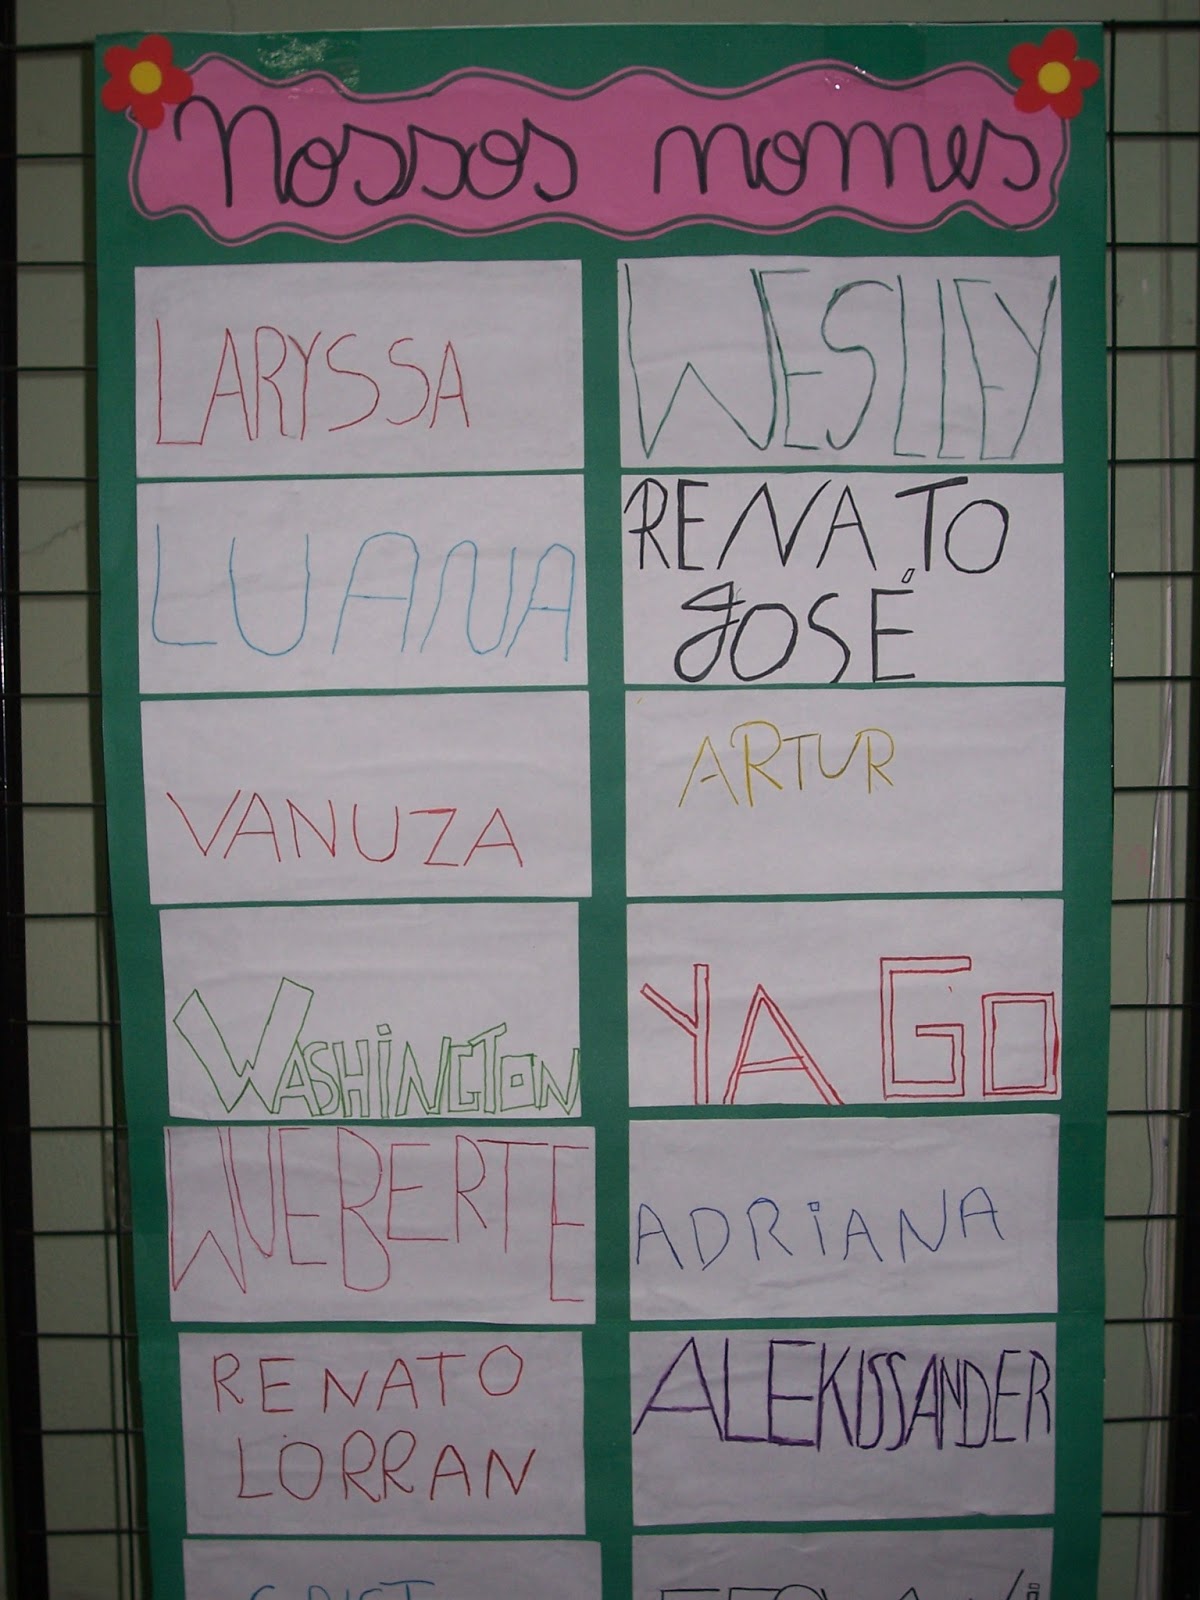 Nossos nomes
LARYSSA
WESLLEY
LUANA
RENATO
JOSÉ
VANUZA
ARTUR
WASHINGTON
YAGO
WUEBERTE
ADRIANA
RENATO
LORRAN
ALEKISSANDER